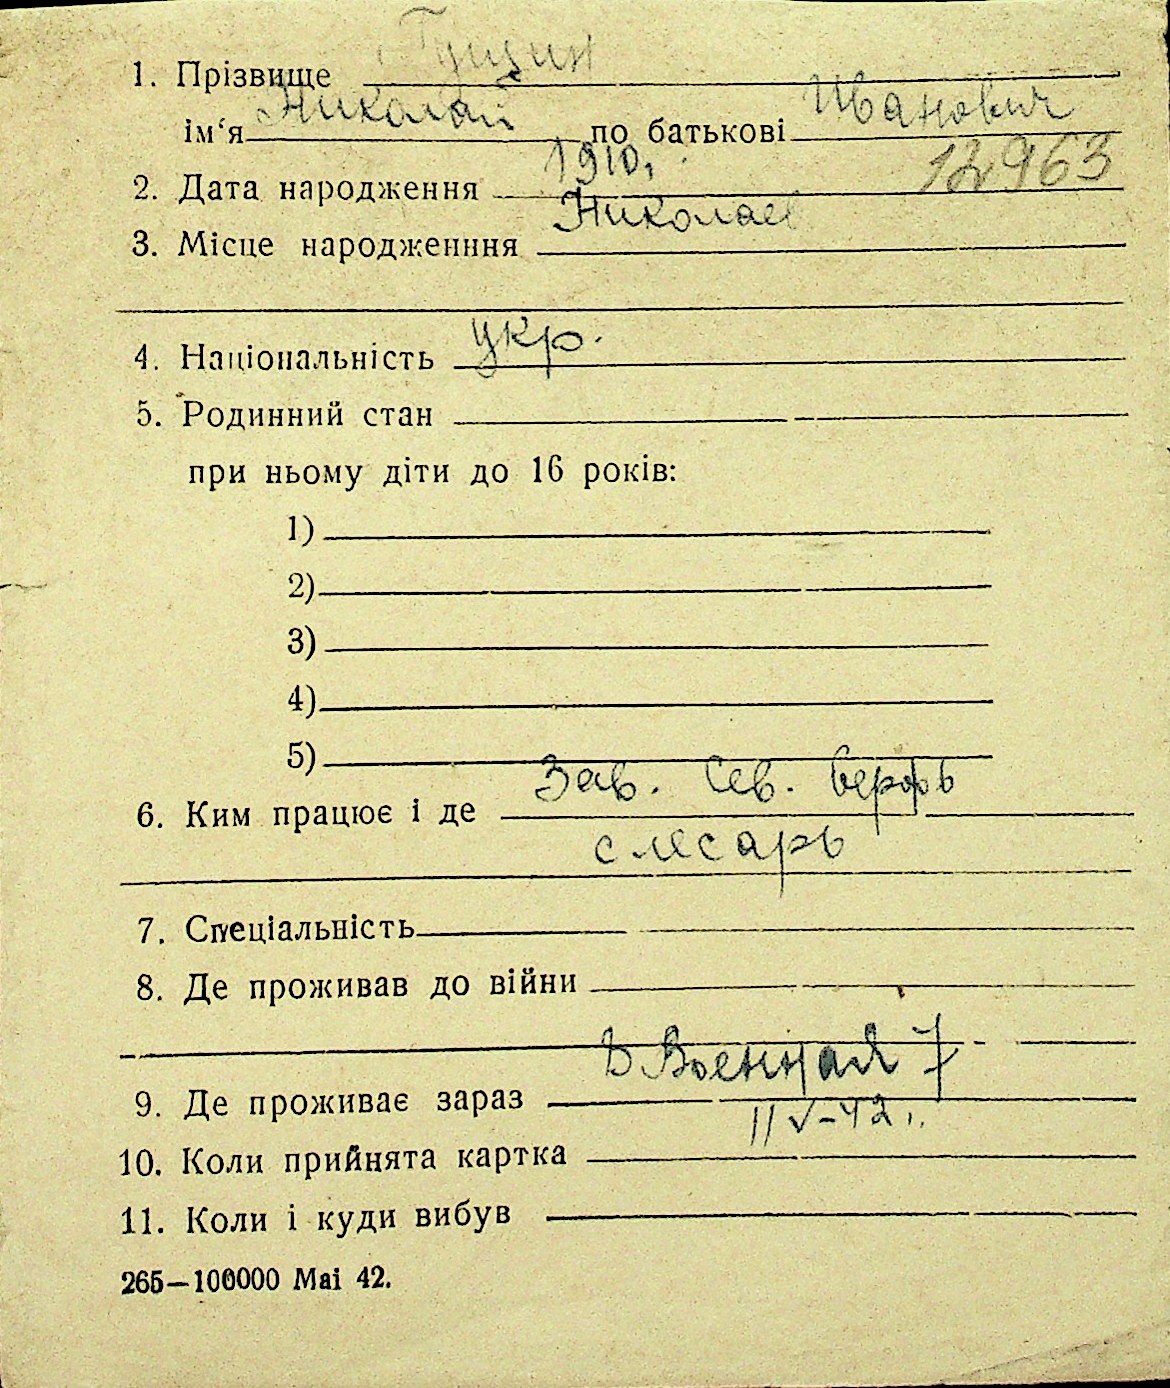 1. Прізвище Гущин
ім‘я Николай по батькові Иванович
2. Дата народження 1910. 12963
3. Місце народженння Николаев
4. Національність укр.
5. Родинний стан
при ньому діти до 16 років:
1)
2)
3)
4)
5)
6. Ким працює і де Зав. Сев. верфь
слесарь
7. Спеціальність
8. Де проживав до війни
9. Де проживає зараз Военная 7
10. Коли прийнята картка 11 V-42.
11. Коли і куди вибув
265—100000 Маі 42.